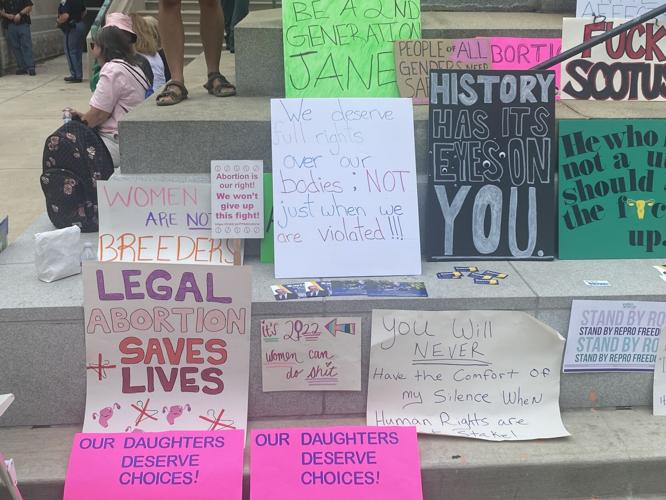 BE A 2ND
GENERATION
JANE
PEOPLE OF ALL
GENDERS NEED
FUCK
SCOTUS
HISTORY
HAS ITS
EYES ON
YOU.
We deserve
full rights
over our
bodies; NOT
just when we
are violated!!!
He who
not a u
should
the f
up.
Abortion is
our right!
We won't
give up
this fight!
WOMEN
ARE NOT
BREEDERS
LEGAL
ABORTION
SAVES
LIVES
it's 2022
women can
do shit
YOU Will
NEVER
Have the Comfort OF
my Silence WHEN
Human Rights are
STAND BY RO
STAND BY REPRO FREED
STAND BY RO
STAND BY REPRO FREEDO
OUR DAUGHTERS
DESERVE
CHOICES!
OUR DAUGHTERS
DESERVE
CHOICES!